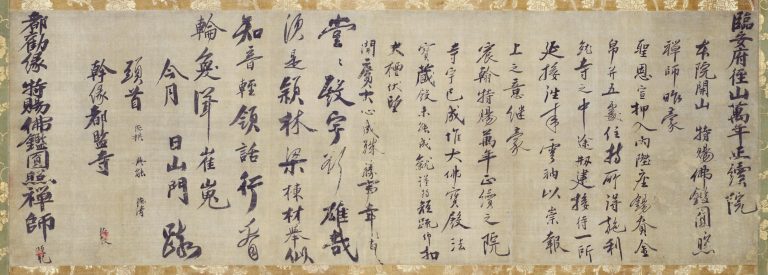 臨安府徑山萬年正續院
本院開山 特賜佛鑑圓照
禪師昨蒙
聖恩宣押入內陞座錫賚金
帛幷五處住持所得施利
就寺之中途剏建接待一所
延接往來雲衲以崇報
上之意繼蒙
宸翰特賜萬年正續之院
寺宇已成惟大佛寶殿法
寶藏殿未能成就謹持短疏仰扣
大檀伏望
開廣大心成殊勝事章
堂堂殿宇彰雄哉
須是穎林梁棟材舉似
知音輕領話行看
輪奐聳崔嵬
今月 日山門 疏
頭首
幹緣都監寺
都勸緣 特賜佛鑑圓照禪師